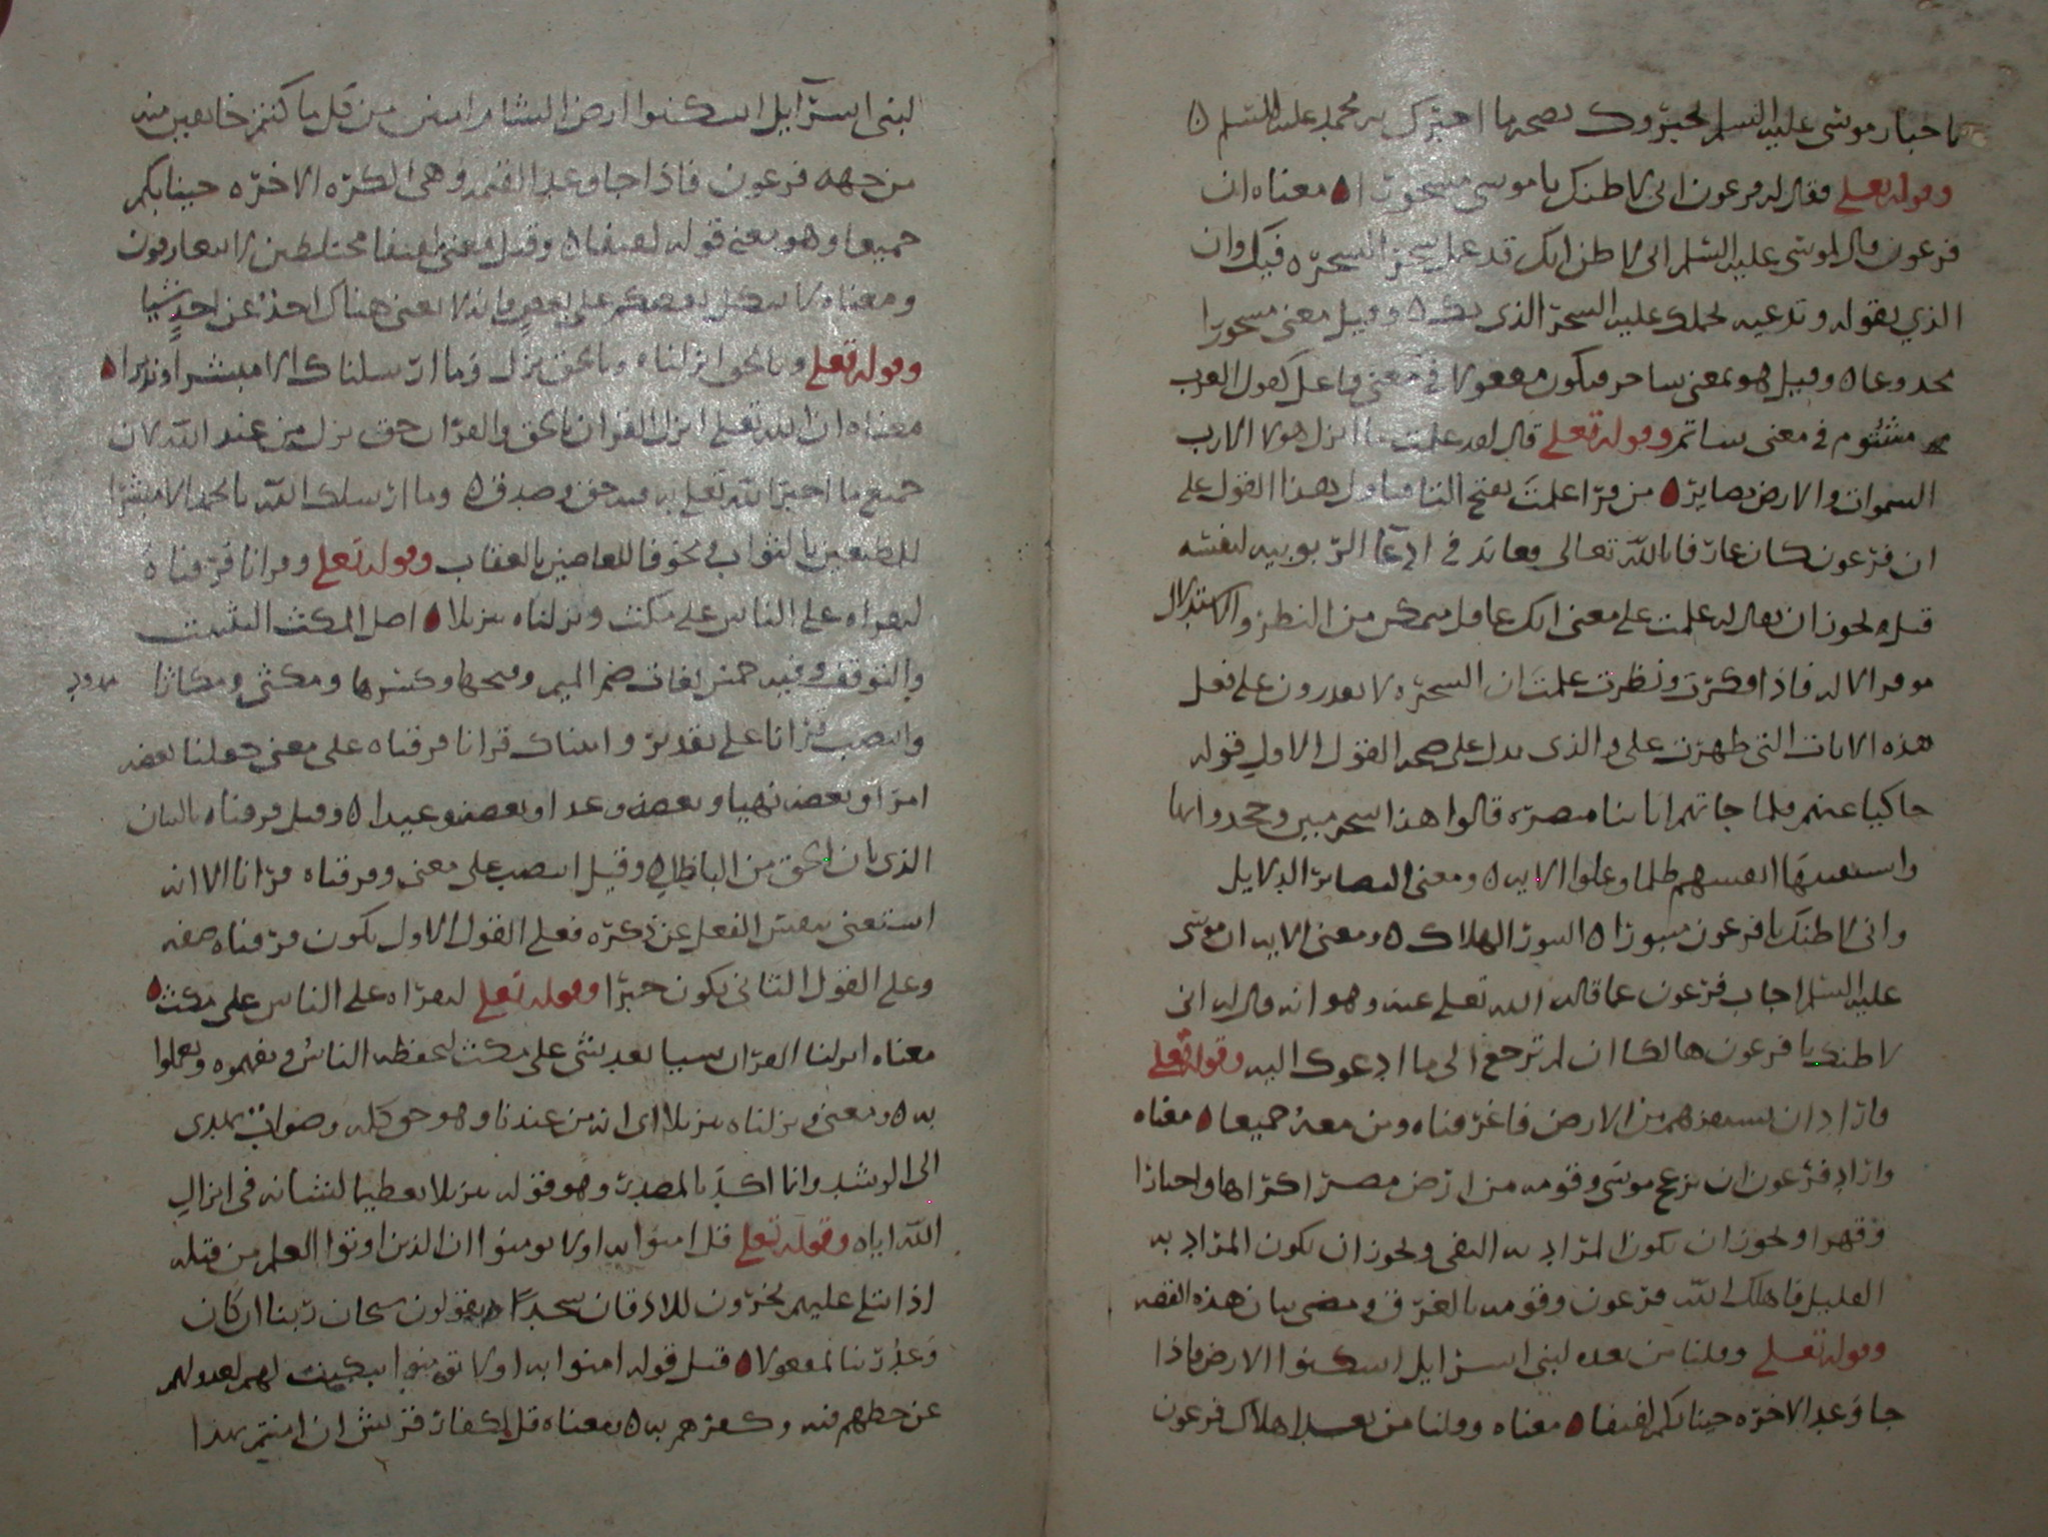 باخبار موسى عليه السلم لخبروك بصحه ما اخبرك به محمد عليه السلم ه
وقوله تعلى فقال له فرعون انى لاظنك يا موسى مسحورا ه معناه ان
فرعون قال لموسى عليه السلم انى لاظن انك قد عمل سحر السحره فيك وان
الذي يقوله وتدعيه لحملك عليه السحر الذى بك ه وقيل معنى مسحورا
مخدوعا ه وقيل هو بمعنى ساحر فيكون مفعولا في معنى فاعل كقول العرب
مشئوم في معنى شائم وقوله تعلى قال لقد علمت ما انزل هولا الا رب
السموات والارض بصاير ه من قرا علمت بفتح التا فتاول بهذا القول على
ان فرعون كان عارفا بالله تعالى معاند في ادعآ الربوبيه لنفسه
قيل ويجوز ان يقال له علمت على معنى انك عاقل متمكن من النظر والاستدلال
موفر الاله فاذا فكرت ونظرت علمت ان السحره لا يقدرون على فعل
هذه الايات التى ظهرت على والذى يدل على صحه القول الاول قوله
حاكيا عنهم فلما جاتهم اياتنا مبصره قالوا هذا سحر مبين وجحدوا بها
واستيقنتها انفسهم ظلما وعلوا الايه ه ومعنى البصاير الدلايل
وانى لاظنك يا فرعون مثبورا ه الثبور الهلاك ه ومعنى الايه ان موسى
عليه السلم اجاب فرعون عما قاله الله تعلى عنه وهو انه قال له انى
لاظنك يا فرعون هالكا ان لم ترجع الى ما ادعوك اليه وقوله تعلى
فاراد ان يستفزهم من الارض فاغرقناه ومن معه جميعا ه معناه
واراد فرعون ان يزعج موسى وقومه من ارض مصر اكراها واجبارا
وقهرا ويجوز ان يكون المراد به النفى ويجوز ان يكون المراد به
القتل فاهلك الله فرعون وقومه بالغرق ومضى بيان هذه القصه
وقوله تعلى وقلنا من بعده لبنى اسرايل اسكنوا الارض فاذا
جا وعد الاخره جينا بكم لفيفا ه معناه وقلنا من بعد اهلاك فرعون
لبنى اسرآيل اسكنوا ارض الشام امنين من قبل ما كنتم خايفين منه
من جهه فرعون فاذا جا وعد القيمه وهى الكره الاخره جينا بكم
جميعا وهو معنى قوله لفيفا ه وقيل معنى لفيفا مختلطين لا تتعارفون
ومعناه لا يتكل بعضكم على بعض فانه لا يغنى هناك احد عن احد شيا
وقوله تعلى وبالحق انزلناه وبالحق نزل وما ارسلناك الا مبشرا ونذيرا ه
معناه ان الله تعلى انزل القران بالحق والقران حق نزل من عند الله لان
جميع ما اخبر الله تعلى به فيه حق وصدق ه وما ارسلك الله يا محمد الا مبشرا
للمطيعين بالثواب ومخوفا للعاصين بالعقاب وقوله تعلى وقرانا فرقناه
لتقراه على الناس على مكث ونزلناه تنزيلا ه اصل المكث التثبت
والتوقف وفيه خمس لغات ضم الميم وفتحها وكسرها ومكثى ومكاثا
وانتصب قرانا على تقدير واتيناك قرانا فرقناه على معنى جعلنا بعضه
امرا وبعضه نهيا وبعضه وعدا وبعضه وعيدا ه وقيل فرقناه بالبيان
الذى بان الحق من الباطل ه وقيل انتصب على معنى وفرقناه قرانا الا انه
استغنى بتفسير الفعل عن ذكره فعلى القول الاول يكون فرقناه صفه
وعلى القول الثانى يكون خبرا وقوله تعلى لتقراه على الناس على مكث ه
معناه انزلنا القران شيا بعد شى على مكث ليحفظه الناس ويفهموه ويعملوا
به ه ومعنى ونزلناه تنزيلا اى انه من عندنا وهو حق كله وصواب يهدى
الى الرشد وانما اكد بالمصدر وهو قوله تنزيلا تعظيما لشانه فى انزال
الله اياه وقوله تعلى قل امنوا به اولا تومنوا ان الذين اوتوا العلم من قبله
اذا يتلى عليهم يخرون للاذقان سجدا ويقولون سبحان ربنا ان كان
وعد ربنا لمفعولا ه قيل قوله امنوا به اولا تومنوا تبكيت لهم لعدولهم
عن حظهم فيه وكفرهم به ه ومعناه قل لكفار قريش ان امنتم بهذا